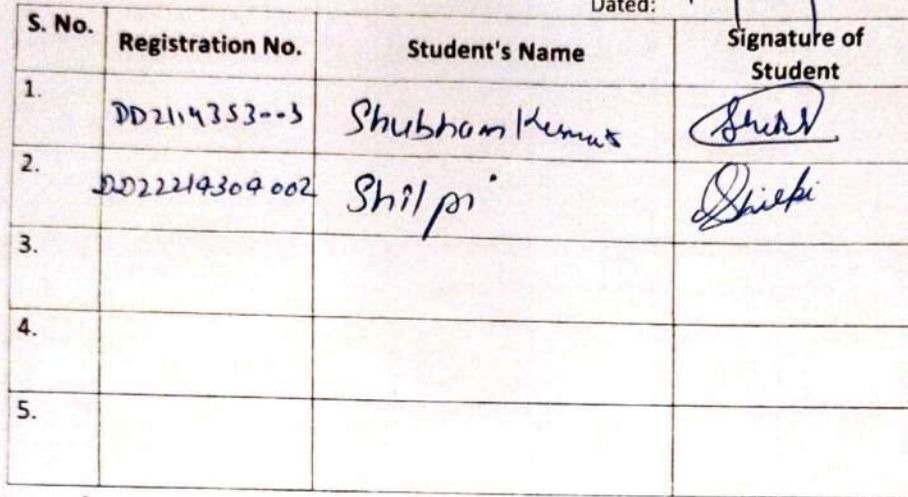 Dated:
S. No. Registration No. Student's Name Signature of Student
1. Shubham Kumar
2. DD22214304002 Shilpi Shilpi
3.
4.
5.